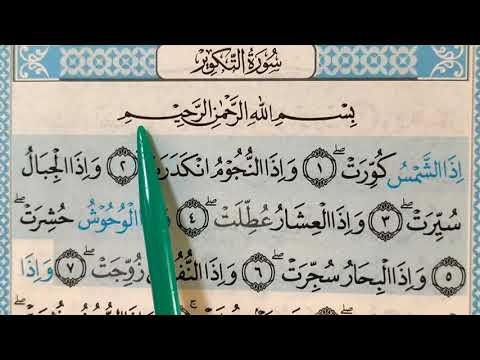 سُورَةُ التَّكْوِيرِ
بِسْمِ اللهِ الرَّحْمٰنِ الرَّحِيْمِ
اِذَا الشَّمْسُ كُوِّرَتْ ۖ ﴿١﴾ وَاِذَا النُّجُوْمُ انْكَدَرَتْ ﴿٢﴾ وَاِذَا الْجِبَالُ
سُيِّرَتْ ۖ ﴿٣﴾ وَاِذَا الْعِشَارُ عُطِّلَتْ ۖ ﴿٤﴾ الْوُحُوْشُ حُشِرَتْ ۖ
﴿٥﴾ وَاِذَا الْبِحَارُ سُجِّرَتْ ۖ ﴿٦﴾ وَاِذَا زُوِّجَتْ ۖ ﴿٧﴾ وَاِذَا